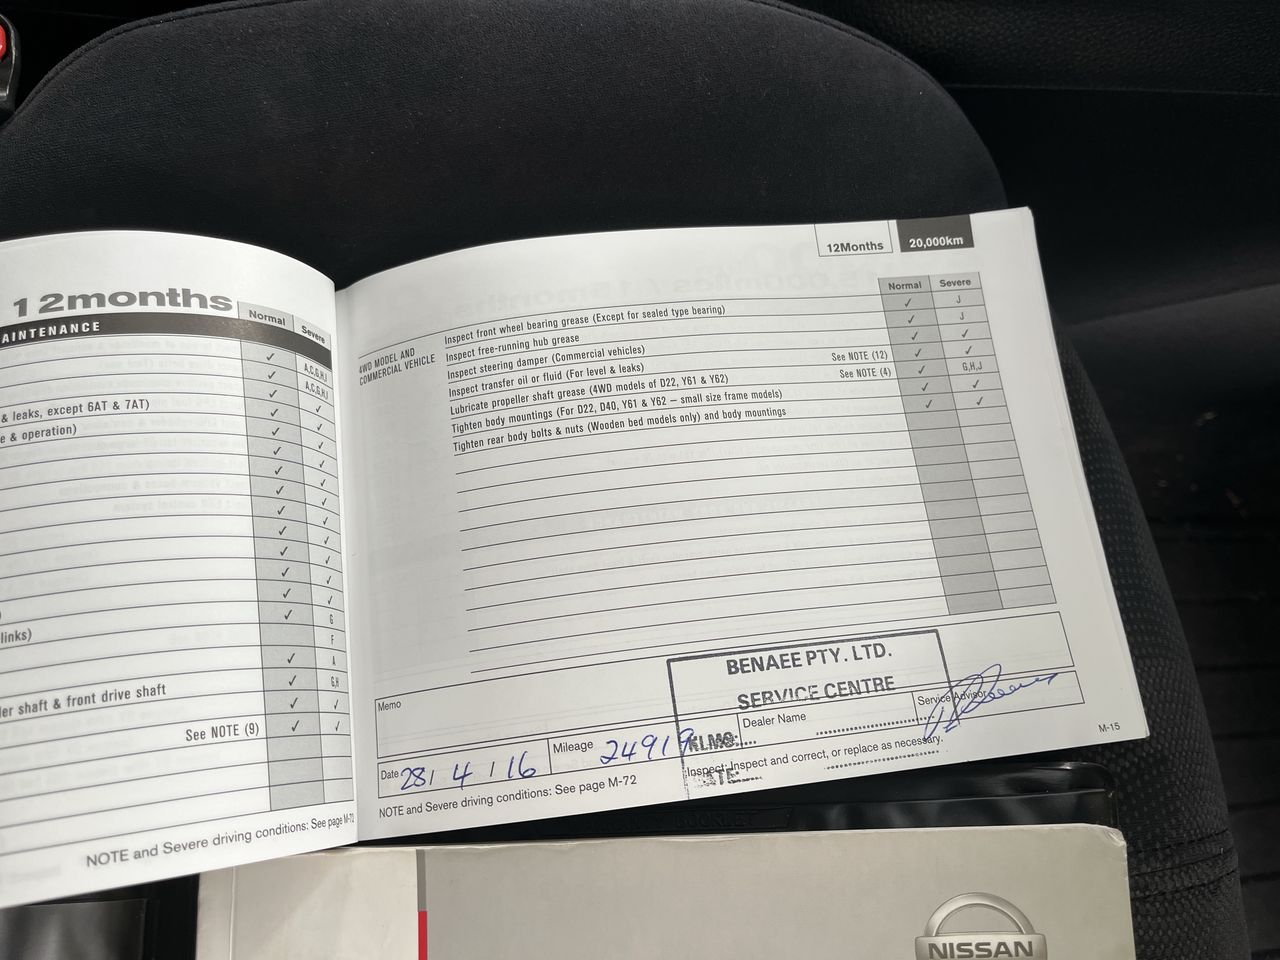 12months
AINTENANCE
Normal
Severe
✓ A,C,G,H,I
✓ A,C,G,H,I
✓ ✓
& leaks, except 6AT & 7AT)
e & operation)
links)
G
F
✓ A
✓ G,H
ler shaft & front drive shaft
✓ ✓
See NOTE (9) ✓ ✓
NOTE and Severe driving conditions: See page M-72
12Months 20,000km
Normal Severe
4WD MODEL AND
COMMERCIAL VEHICLE
Inspect front wheel bearing grease (Except for sealed type bearing) ✓ J
Inspect free-running hub grease ✓ J
Inspect steering damper (Commercial vehicles) ✓ ✓
Inspect transfer oil or fluid (For level & leaks) See NOTE (12) ✓ ✓
Lubricate propeller shaft grease (4WD models of D22, Y61 & Y62) See NOTE (4) ✓ G,H,J
Tighten body mountings (For D22, D40, Y61 & Y62 – small size frame models) ✓ ✓
Tighten rear body bolts & nuts (Wooden bed models only) and body mountings ✓ ✓
Memo
BENAEE PTY. LTD.
SERVICE CENTRE
KLMS:
DATE:
Date 28/4/16
Mileage 24919
Dealer Name
Service Advisor
NOTE and Severe driving conditions: See page M-72
Inspect: Inspect and correct, or replace as necessary.
M-15
NISSAN